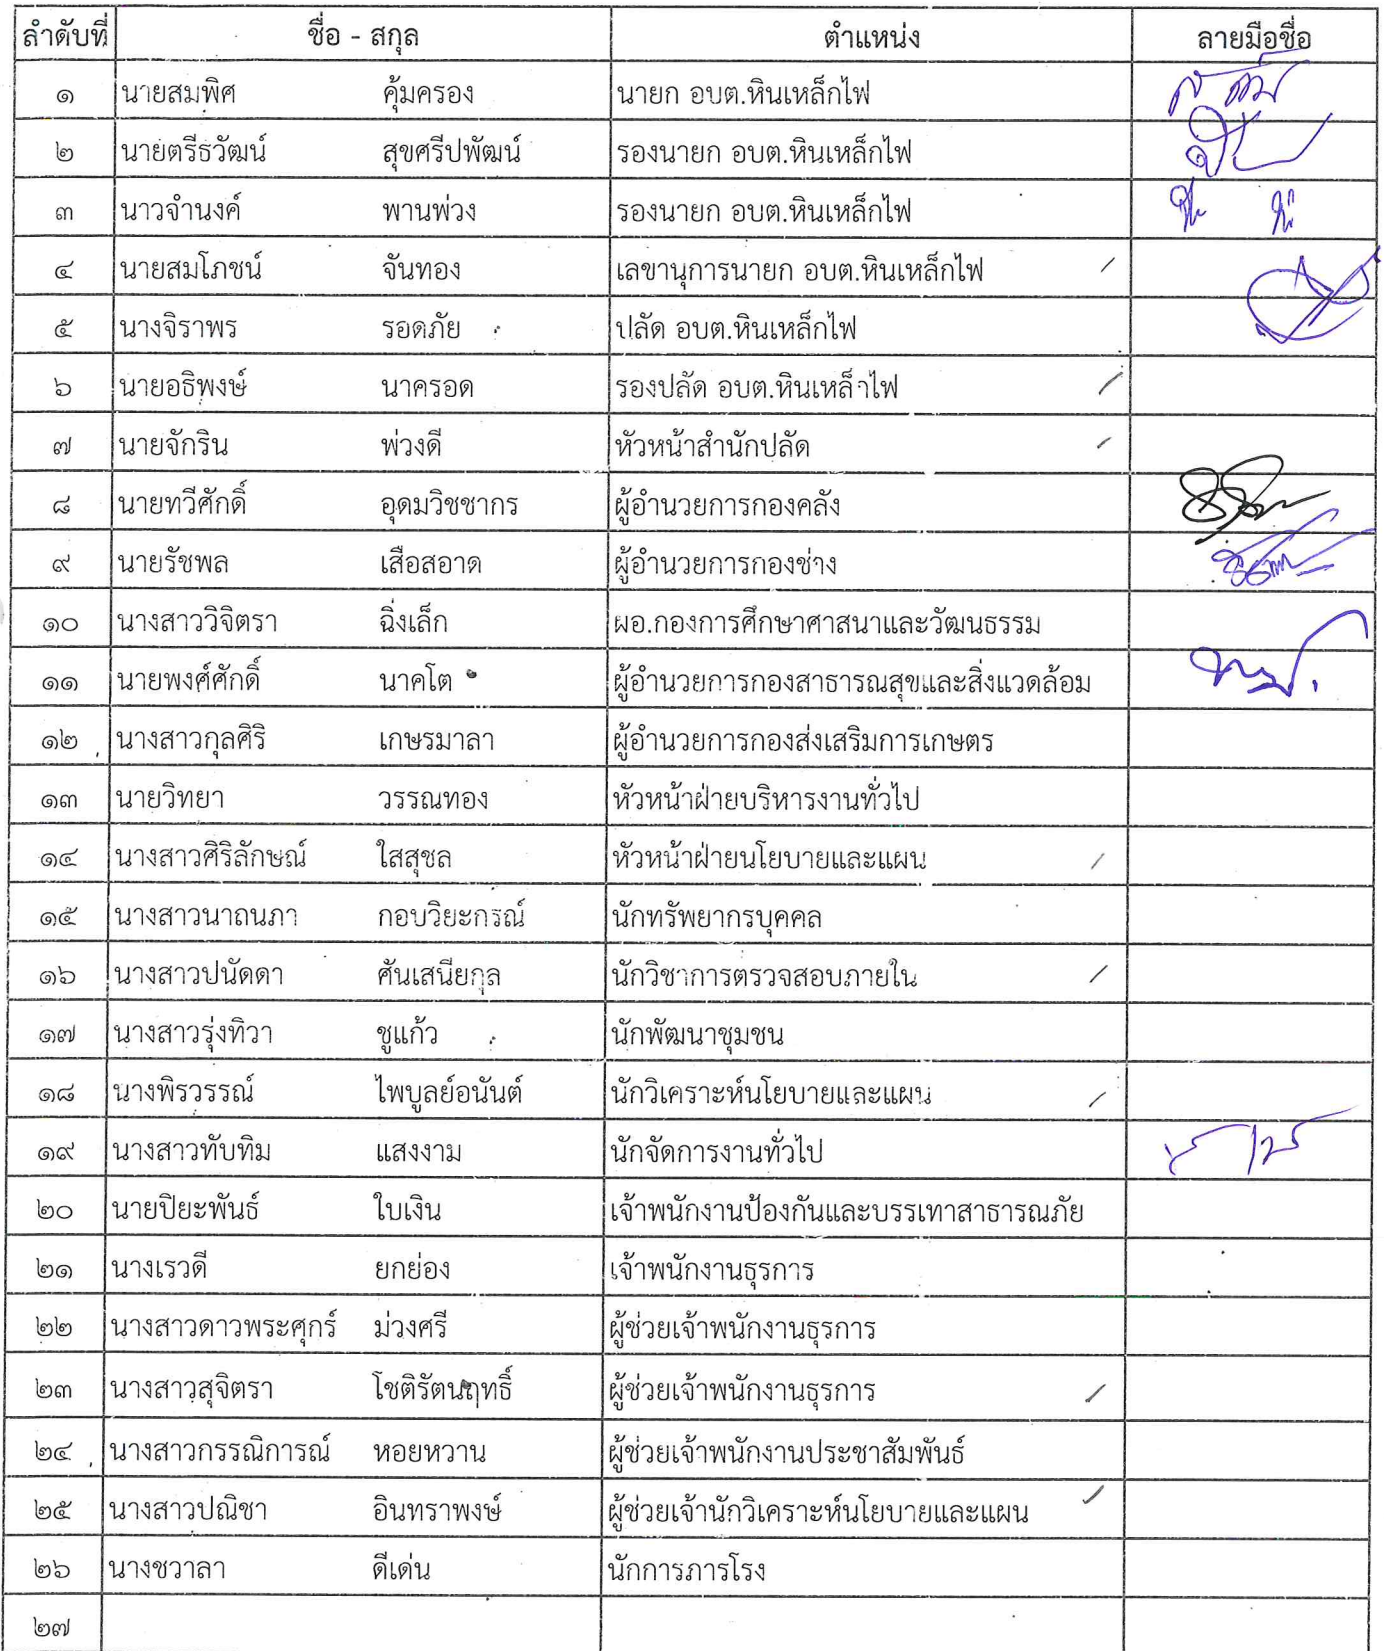 ลำดับที่ ชื่อ - สกุล ตำแหน่ง ลายมือชื่อ
๑ นายสมพิศ คุ้มครอง นายก อบต.หินเหล็กไฟ
๒ นายตรีธวัฒน์ สุขศรีปพัฒน์ รองนายก อบต.หินเหล็กไฟ
๓ นาวจำนงค์ พานพ่วง รองนายก อบต.หินเหล็กไฟ
๔ นายสมโภชน์ จันทอง เลขานุการนายก อบต.หินเหล็กไฟ
๕ นางจิราพร รอดภัย ปลัด อบต.หินเหล็กไฟ
๖ นายอธิพงษ์ นาครอด รองปลัด อบต.หินเหล็กไฟ
๗ นายจักริน พ่วงดี หัวหน้าสำนักปลัด
๘ นายทวีศักดิ์ อุดมวิชชากร ผู้อำนวยการกองคลัง
๙ นายรัชพล เสือสอาด ผู้อำนวยการกองช่าง
๑๐ นางสาววิจิตรา ฉิ่งเล็ก ผอ.กองการศึกษาศาสนาและวัฒนธรรม
๑๑ นายพงศ์ศักดิ์ นาคโต ผู้อำนวยการกองสาธารณสุขและสิ่งแวดล้อม
๑๒ นางสาวกุลศิริ เกษรมาลา ผู้อำนวยการกองส่งเสริมการเกษตร
๑๓ นายวิทยา วรรณทอง หัวหน้าฝ่ายบริหารงานทั่วไป
๑๔ นางสาวศิริลักษณ์ ใสสุชล หัวหน้าฝ่ายนโยบายและแผน
๑๕ นางสาวนาถนภา กอบวิยะกรณ์ นักทรัพยากรบุคคล
๑๖ นางสาวปนัดดา ศันเสนียกุล นักวิชาการตรวจสอบภายใน
๑๗ นางสาวรุ่งทิวา ชูแก้ว นักพัฒนาชุมชน
๑๘ นางพิรวรรณ์ ไพบูลย์อนันต์ นักวิเคราะห์นโยบายและแผน
๑๙ นางสาวทับทิม แสงงาม นักจัดการงานทั่วไป
๒๐ นายปิยะพันธ์ ใบเงิน เจ้าพนักงานป้องกันและบรรเทาสาธารณภัย
๒๑ นางเรวดี ยกย่อง เจ้าพนักงานธุรการ
๒๒ นางสาวดาวพระศุกร์ ม่วงศรี ผู้ช่วยเจ้าพนักงานธุรการ
๒๓ นางสาวสุจิตรา โชติรัตนฤทธิ์ ผู้ช่วยเจ้าพนักงานธุรการ
๒๔ นางสาวกรรณิการณ์ หอยหวาน ผู้ช่วยเจ้าพนักงานประชาสัมพันธ์
๒๕ นางสาวปณิชา อินทราพงษ์ ผู้ช่วยเจ้านักวิเคราะห์นโยบายและแผน
๒๖ นางชวาลา ดีเด่น นักการภารโรง
๒๗